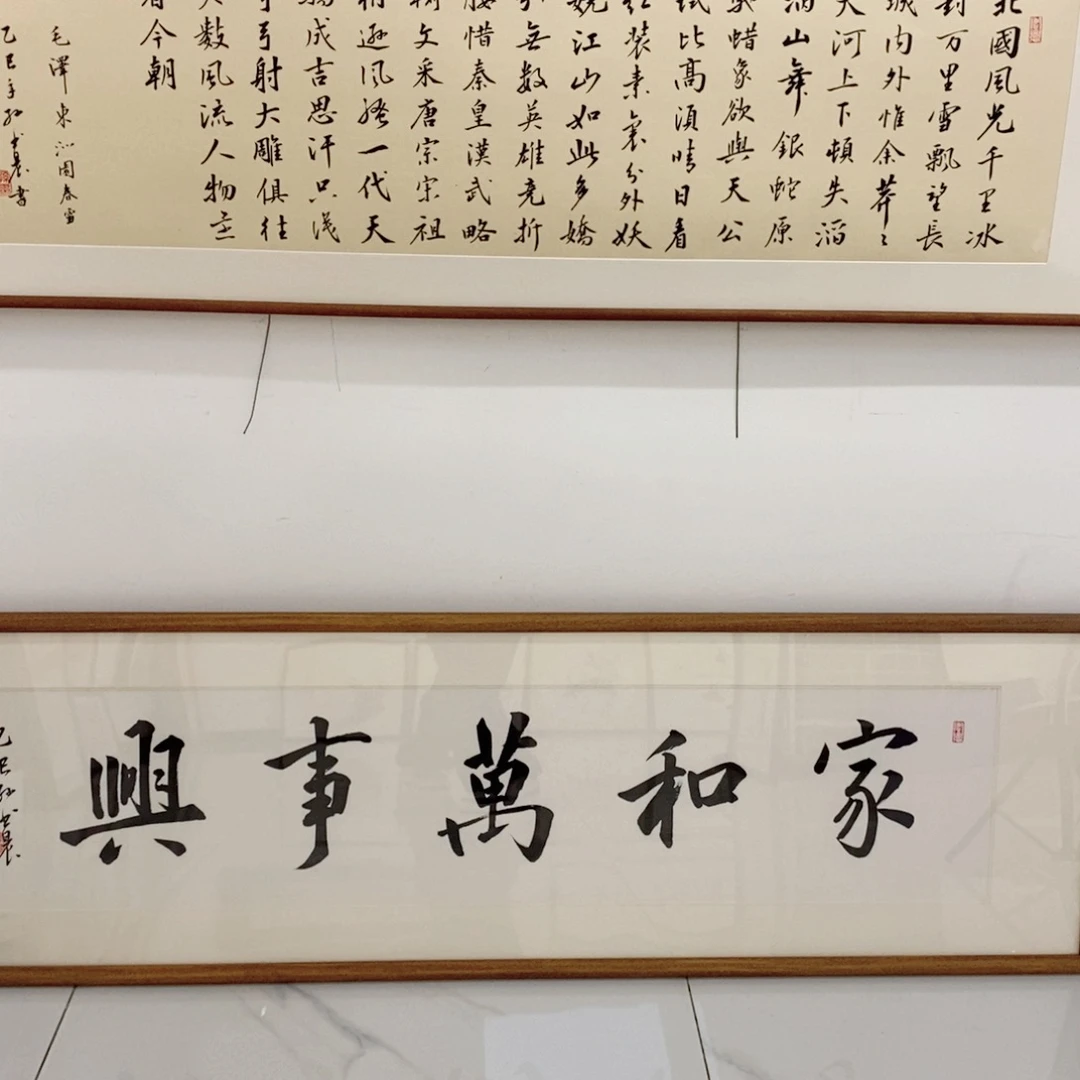 北國風光千里冰
封万里雪飄望長
城内外惟余莽々
大河上下頓失滔
滔山舞銀蛇原
蜡象欲與天公
試比高須晴日看
红装素裹分外妖
娆江山如此多嬌
引無数英雄竞折
腰惜秦皇漢武略
文采唐宗宋祖
稍逊风骚一代天
驕成吉思汗只识
弓射大雕俱往
矣数風流人物还
看今朝
毛澤東沁園春雪
乙巳年孙晨書
家和萬事興
乙巳孙晨